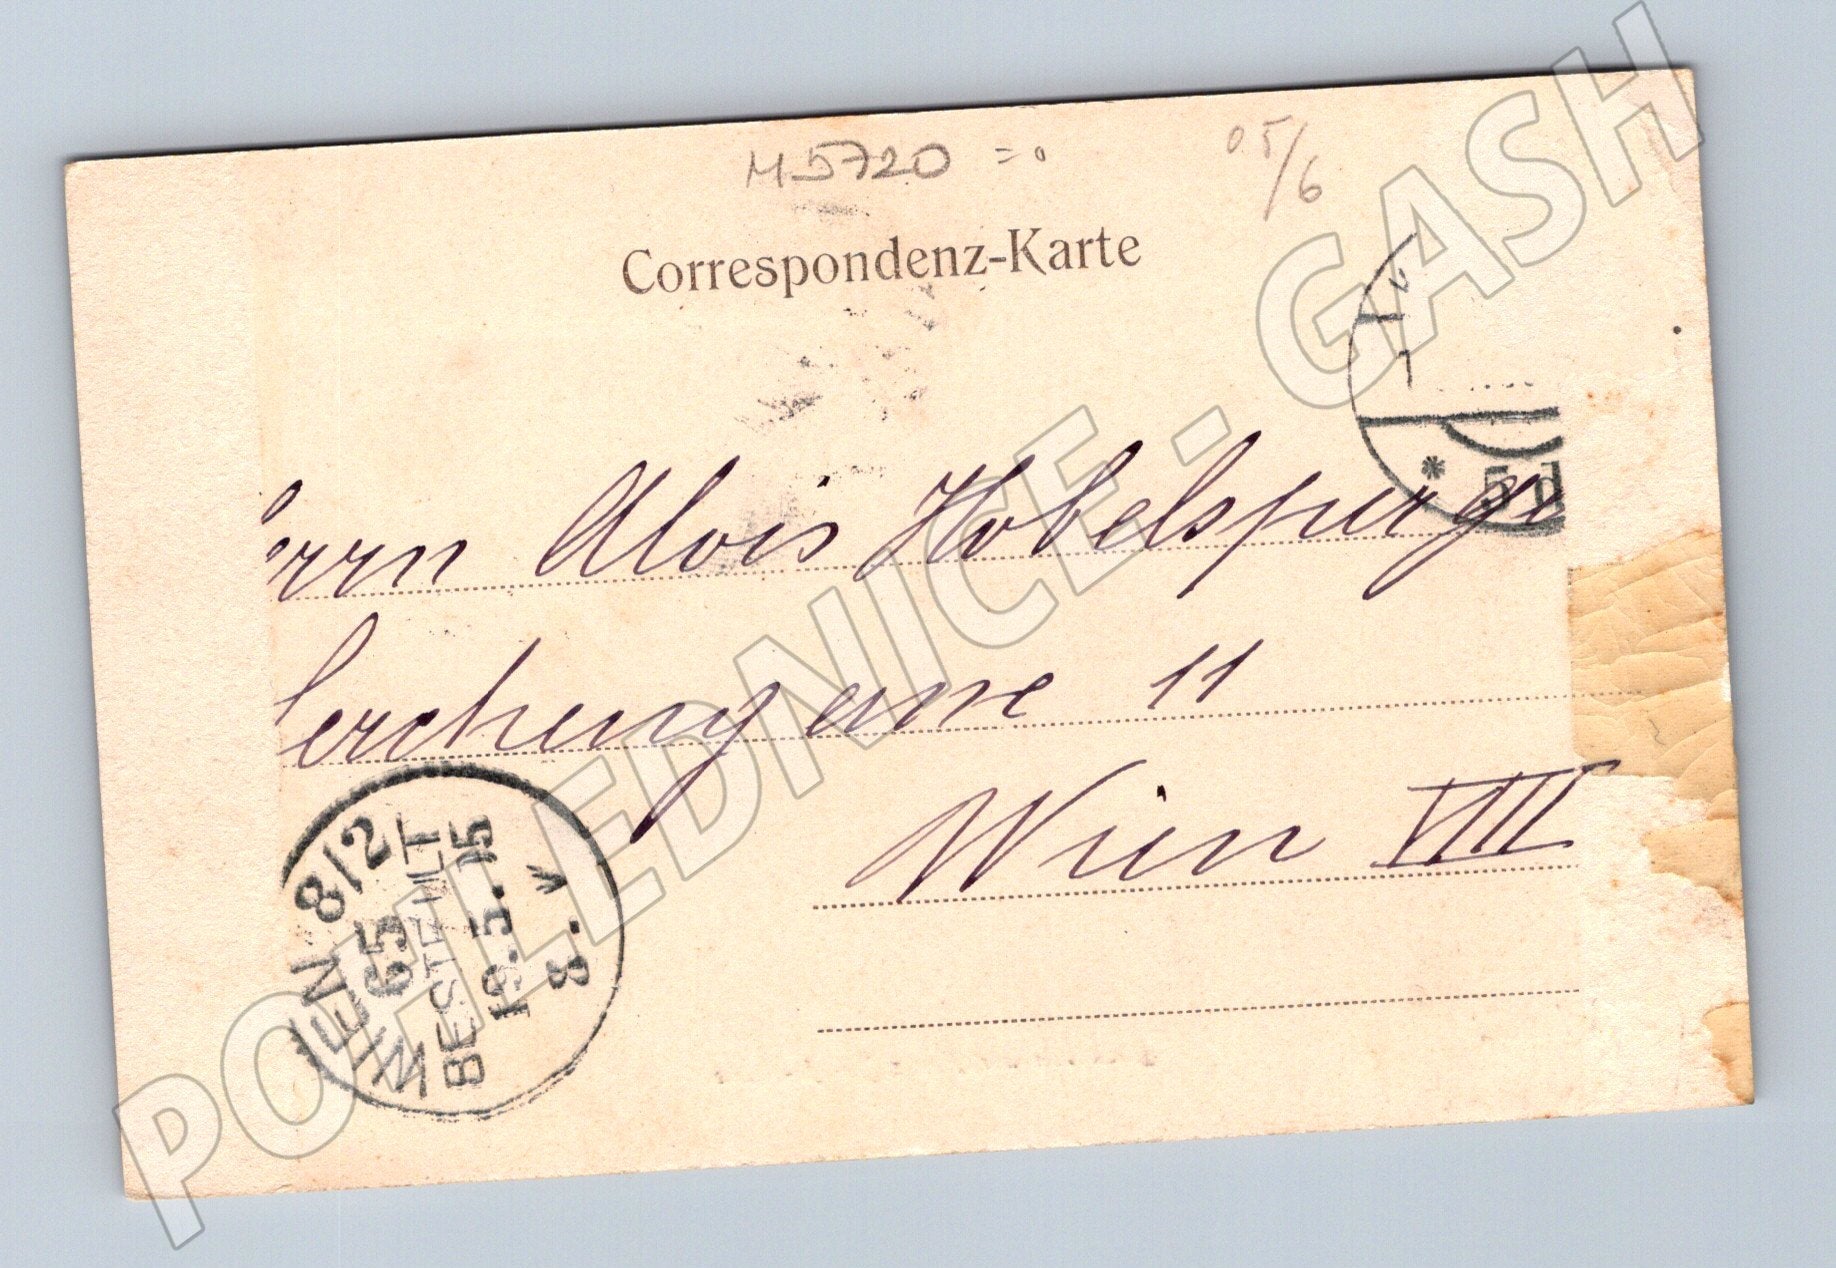 M 5720 =
05/6
Correspondenz-Karte
5
errn Alois Hobelsperge
Lerchengasse 11
Wien VIII
WIEN 8/2
65
BESTELLT
19.5.05
8.V
POHLEDNICE - GASH